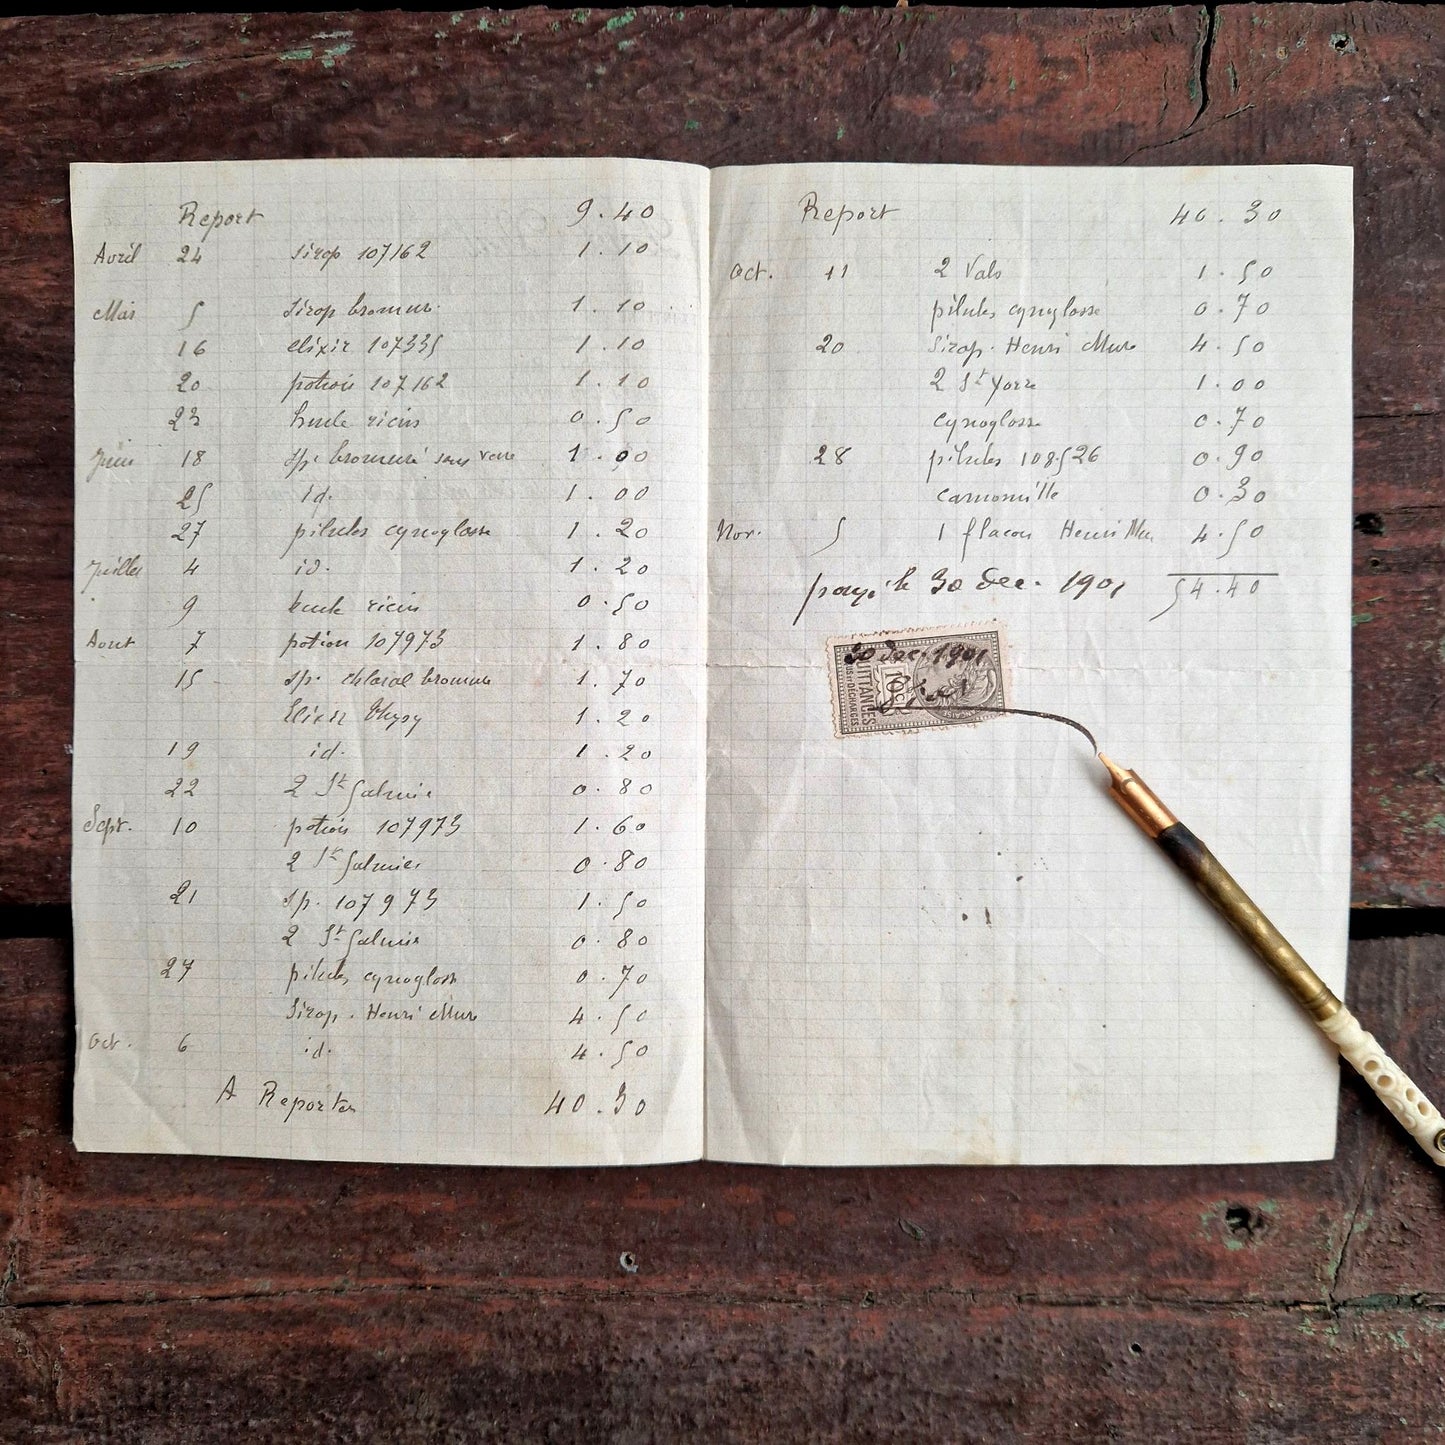 Report 9.40
Avril 24 Sirop 107162 1.10
Mai 5 Sirop bromur. 1.10
16 elixir 107335 1.10
20 potion 107162 1.10
23 huile ricin 0.50
Juin 18 sp. bromuré sans verre 1.00
25 id. 1.00
27 pilules cynoglosse 1.20
Juillet 4 id. 1.20
9 huile ricin 0.50
Aout 7 potion 107973 1.80
15 sp. chloral bromure 1.70
Elixir 1.20
19 id. 1.20
22 2 St Galmier 0.80
Sept. 10 potion 107973 1.60
2 St Galmier 0.80
21 sp. 107973 1.50
2 St Galmier 0.80
27 pilules cynoglosse 0.70
Sirop. Henri Mure 4.50
Oct. 6 id. 4.50
A Reporter 40.30
Report 40.30
Oct. 11 2 Vals 1.50
pilules cynoglosse 0.70
20 Sirop. Henri Mure 4.50
2 St Yorre 1.00
cynoglosse 0.70
28 pilules 108526 0.90
camomille 0.30
Nov. 5 1 flacon Henri Mure 4.50
payé le 30 dec. 1901 54.40
30 dec. 1901
QUITTANCES
REÇUS ET DÉCHARGES
10c